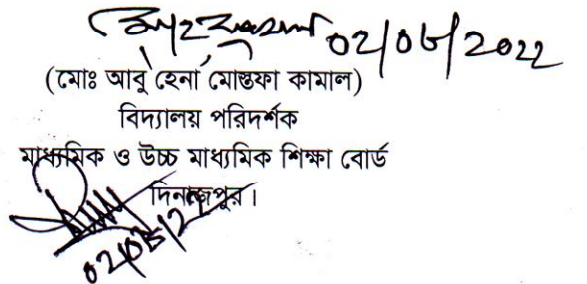 02/08/2022
(মোঃ আবু হেনা মোস্তফা কামাল)
বিদ্যালয় পরিদর্শক
মাধ্যমিক ও উচ্চ মাধ্যমিক শিক্ষা বোর্ড
দিনাজপুর।